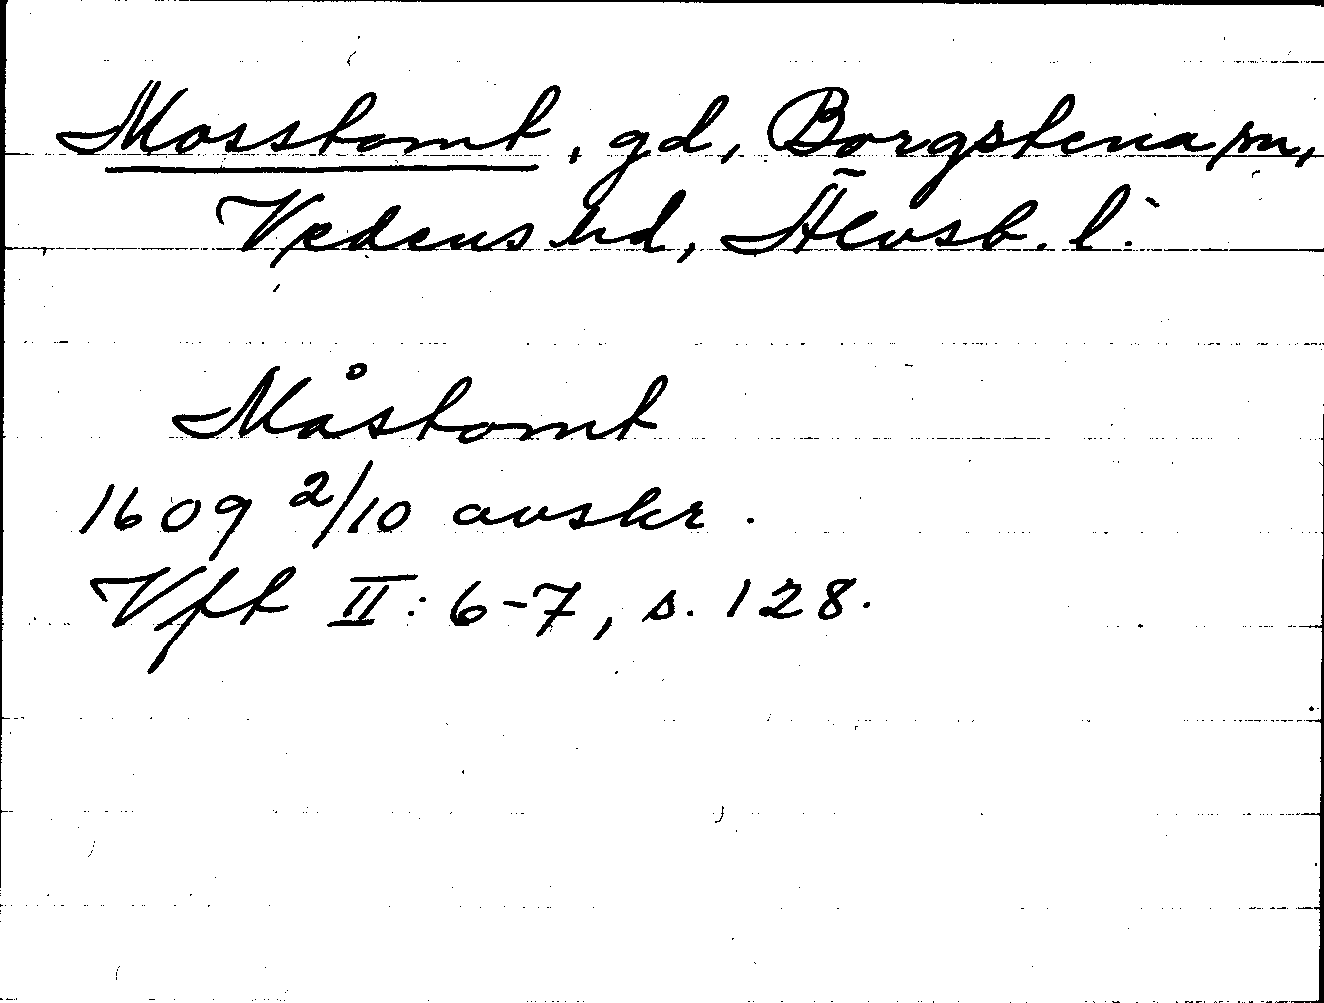 Mosstomt, gd, Borgstena sn,
Vedens hd, Älvsb. l.
Måstomt
1609 2/10 avskr.
Vft II: 6-7, s. 128.